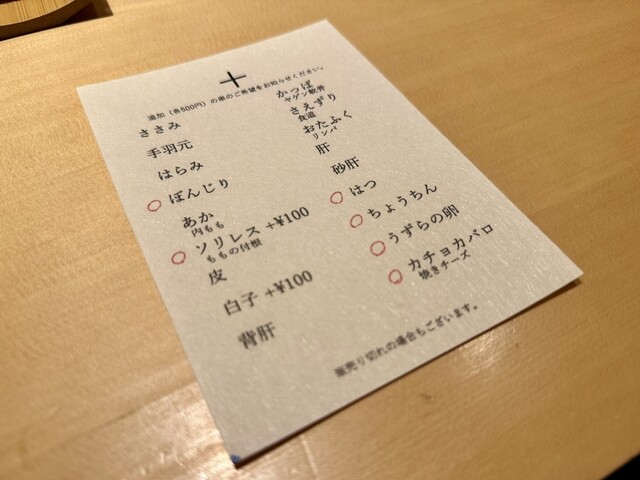 ＋
追加（各500円）の串のご希望をお知らせください。
ささみ
手羽元
はらみ
ぼんじり
あか
内もも
ソリレス +¥100
ももの付根
皮
白子 +¥100
背肝
かっぱ
ヤゲン軟骨
さえずり
食道
おたふく
リンパ
肝
砂肝
はつ
ちょうちん
うずらの卵
カチョカバロ
焼きチーズ
※売り切れの場合もございます。